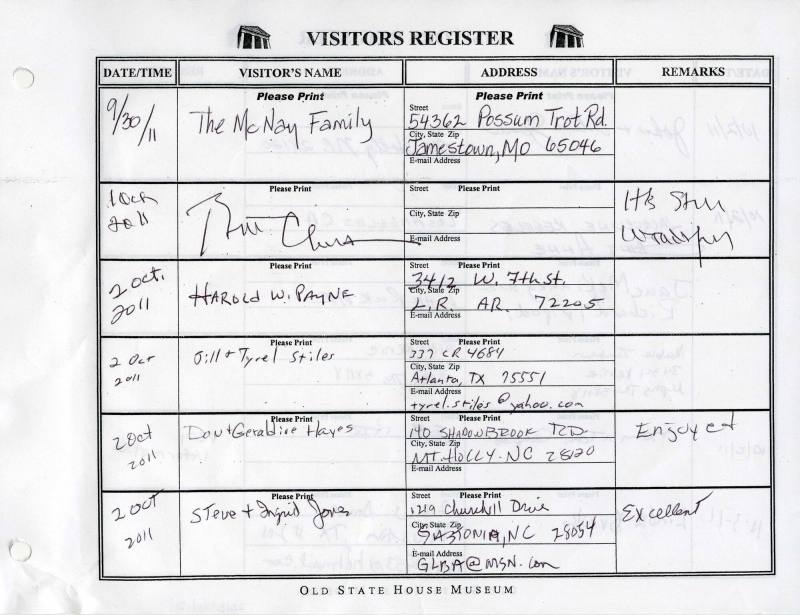 VISITORS REGISTER
DATE/TIME VISITOR'S NAME ADDRESS REMARKS
9/30/11
Please Print
The McNay Family
Please Print
Street
54362 Possum Trot Rd.
City, State Zip
Jamestown, MO 65046
E-mail Address
1 Oct
2011
Please Print
Bill Clinton
Street Please Print
City, State Zip
E-mail Address
It's Still
Wonderful
2 Oct.
2011
Please Print
HAROLD W. PAYNE
Street Please Print
3412 W. 7th St.
City, State Zip
L.R. AR. 72205
E-mail Address
2 Oct
2011
Please Print
Jill + Tyrel Stiles
Street Please Print
337 CR 4684
City, State Zip
Atlanta, TX 75551
E-mail Address
tyrel.stiles@yahoo.com
2 Oct
2011
Please Print
Don + Geraldine Hayes
Street Please Print
140 SHADOWBROOK RD.
City, State Zip
MT. HOLLY. NC 28120
E-mail Address
Enjoyed
2 Oct
2011
Please Print
Steve + Ingrid Jones
Street Please Print
1219 Churchill Drive
City, State Zip
GASTONIA, NC 28054
E-mail Address
GLBA@MSN.com
Excellent
OLD STATE HOUSE MUSEUM